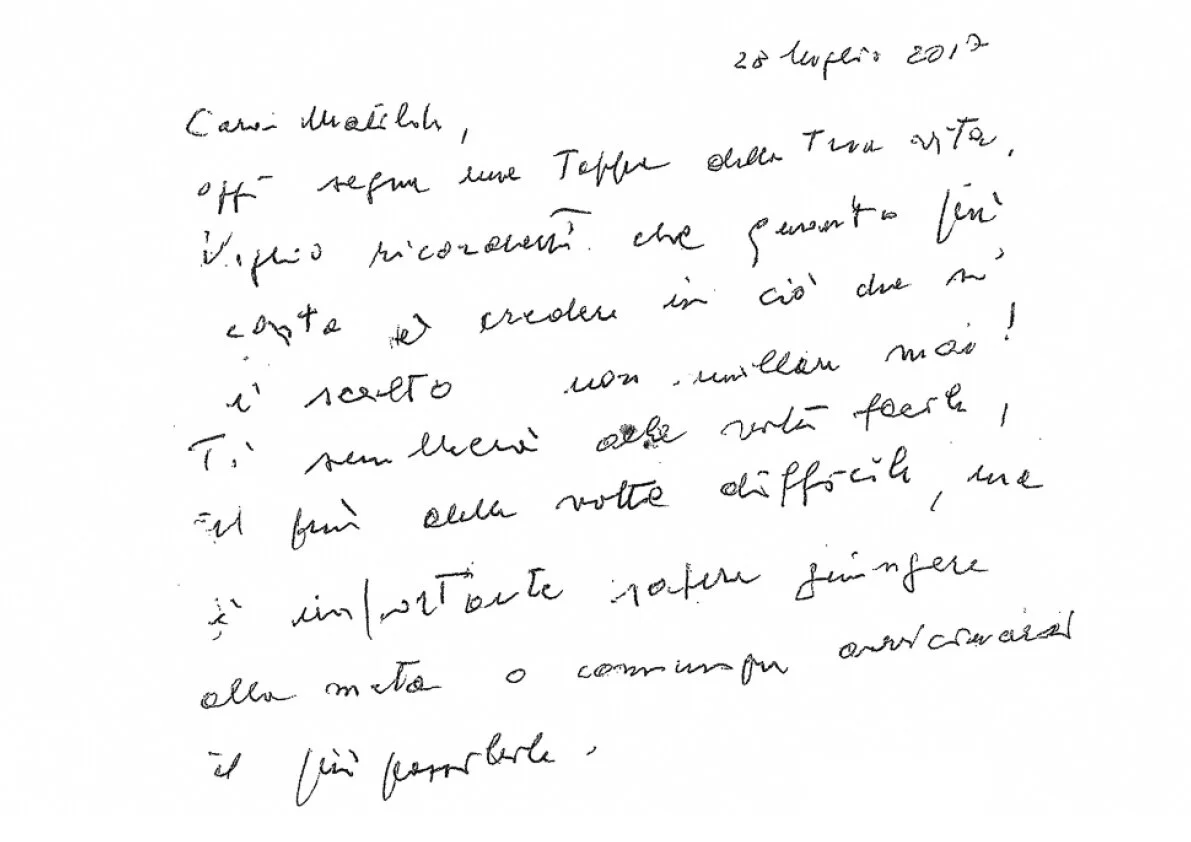 28 luglio 2017
Cara Matilde,
oggi segna una Tappa della Tua vita.
Voglio ricordarti che quanto più
conta è credere in ciò che si
è scelto non mollare mai!
Ti sembrerà alle volte facile,
il più delle volte difficile, ma
è importante sapere giungere
alla meta o comunque avvicinarsi
il più possibile.